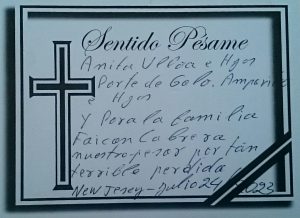 Sentido Pésame
Anita Ulloa e Hjos
Parte de Galo, Amparito
e Hjos
y Para la familia
Faicon Cabrera
nuestro pesar por tan
terrible perdida
New Jersey - Julio 24/2023